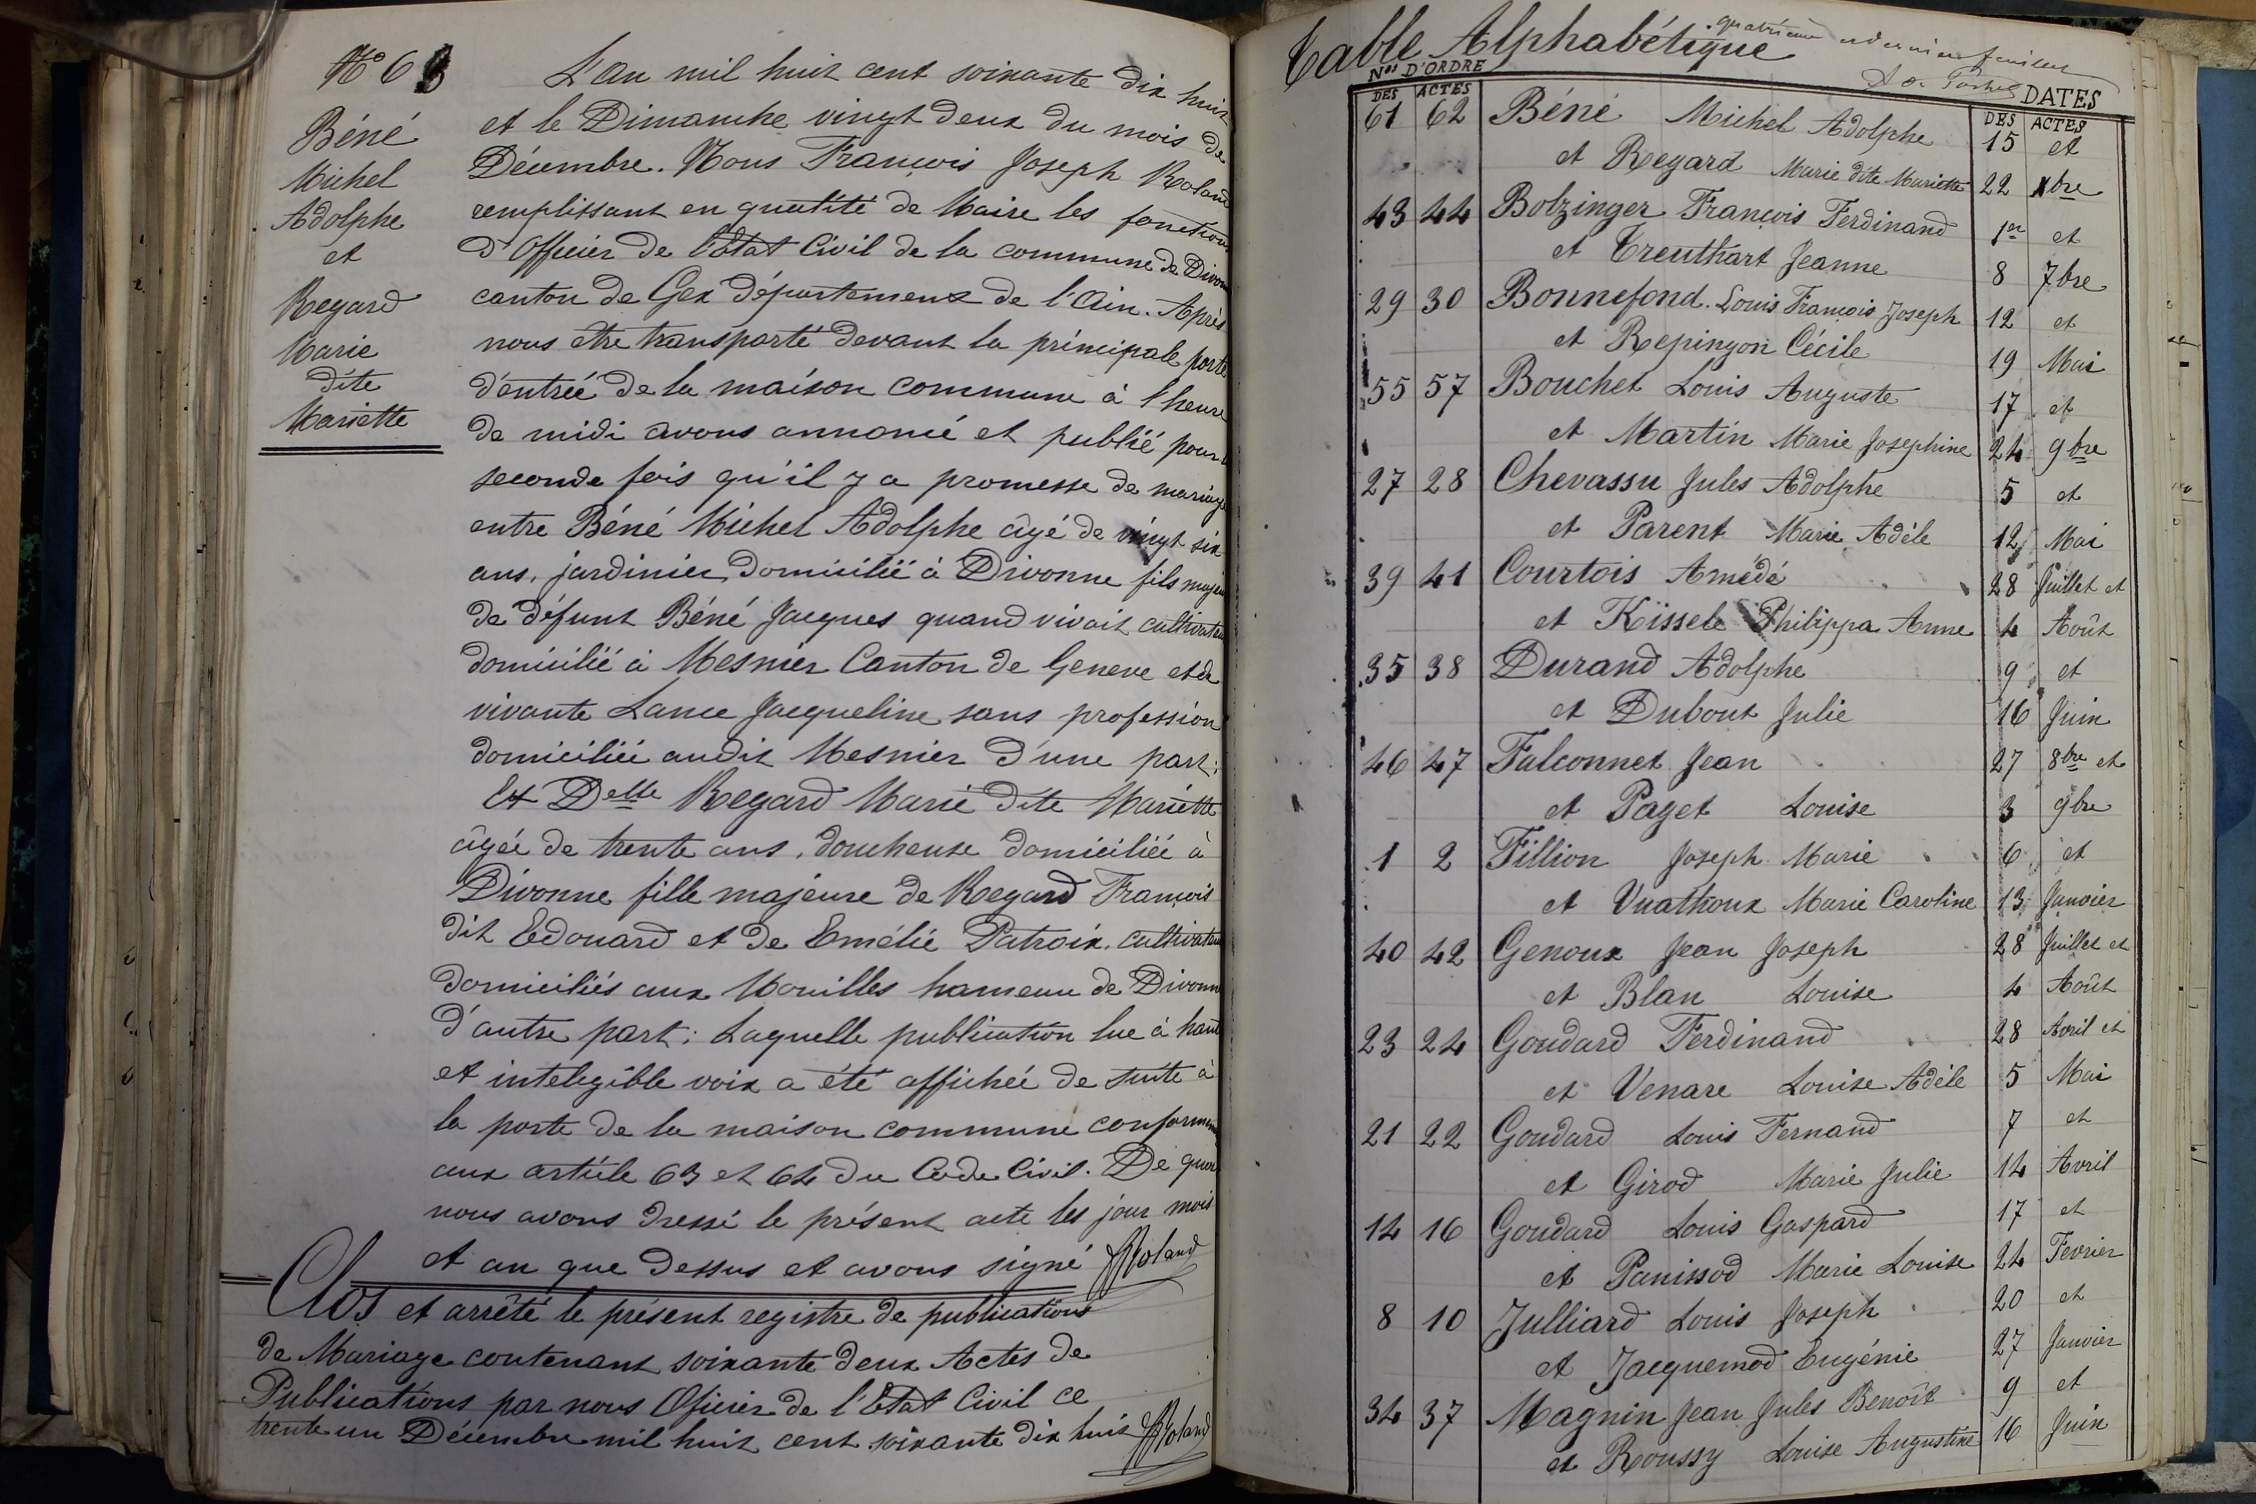 N° 62
Béné
Michel
Adolphe
et
Regard
Marie
dite
Mariette
L'an mil huit cent soixante dix huit
et le Dimanche vingt deux du mois de
Décembre. Nous François Joseph Roland
remplissant en qualité de Maire les fonctions
d'Officier de l'Etat Civil de la commune de Divonne
canton de Gex département de l'Ain. Après
nous être transporté devant la principale porte
d'entrée de la maison commune à l'heure
de midi avons annoncé et publié pour la
seconde fois qu'il y a promesse de mariage
entre Béné Michel Adolphe âgé de vingt six
ans, jardinier domicilié à Divonne fils majeur
de défunt Béné Jacques quand vivait cultivateur
domicilié à Mesnier Canton de Geneve et de
vivante Lance Jacqueline sans profession
domiciliée audit Mesnier d'une part;
Et Delle Regard Marie dite Mariette
âgée de trente ans, doucheuse domiciliée à
Divonne fille majeure de Regard François
dit Edouard et de Emélie Patroix, cultivateurs
domiciliés aux Mouilles hameau de Divonne
d'autre part; Laquelle publication lue à haute
et intelegible voix a été affichée de suite à
la porte de la maison commune conformément
aux article 63 et 64 du Code Civil. De quoi
nous avons dressé le présent acte les jour mois
et an que dessus et avons signé JRoland
Clos et arrêté le présent registre de publications
de Mariage contenant soixante deux Actes de
Publications par nous Oficier de l'Etat Civil ce
trente un Décembre mil huit cent soixante dix huit JRoland
Table Alphabétique
quatrième et dernier feuillet
Nos D'ORDRE
DES ACTES
DATES
DES ACTES
61 62 Béné Michel Adolphe 15 et
et Regard Marie dite Mariette 22 Xbre
43 44 Bolzinger François Ferdinand 1er et
et Treuthart Jeanne 8 7bre
29 30 Bonnefond. Louis François Joseph 12 et
et Repingon Cécile 19 Mai
55 57 Bouchet Louis Auguste 17 et
et Martin Marie Josephine 24 9bre
27 28 Chevassu Jules Adolphe 5 et
et Parent Marie Adèle 12 Mai
39 41 Courtois Amédé 28 Juillet et
et Kissele Philippa Anne 4 Août
35 38 Durand Adolphe 9 et
et Dubout Julie 16 Juin
46 47 Falconnet Jean 27 8bre et
et Paget Louise 3 9bre
1 2 Fillion Joseph Marie 6 et
et Vuathoux Marie Caroline 13 Janvier
40 42 Genoux Jean Joseph 28 Juillet et
et Blan Louise 4 Août
23 24 Goudard Ferdinand 28 Avril et
et Venare Louise Adèle 5 Mai
21 22 Goudard Louis Fernand 7 et
et Girod Marie Julie 14 Avril
14 16 Goudard Louis Gaspard 17 et
et Panissod Marie Louise 24 Fevrier
8 10 Julliard Louis Joseph 20 et
et Jacquemod Eugénie 27 Janvier
34 37 Magnin Jean Jules Benoît 9 et
et Roussy Louise Augustine 16 Juin